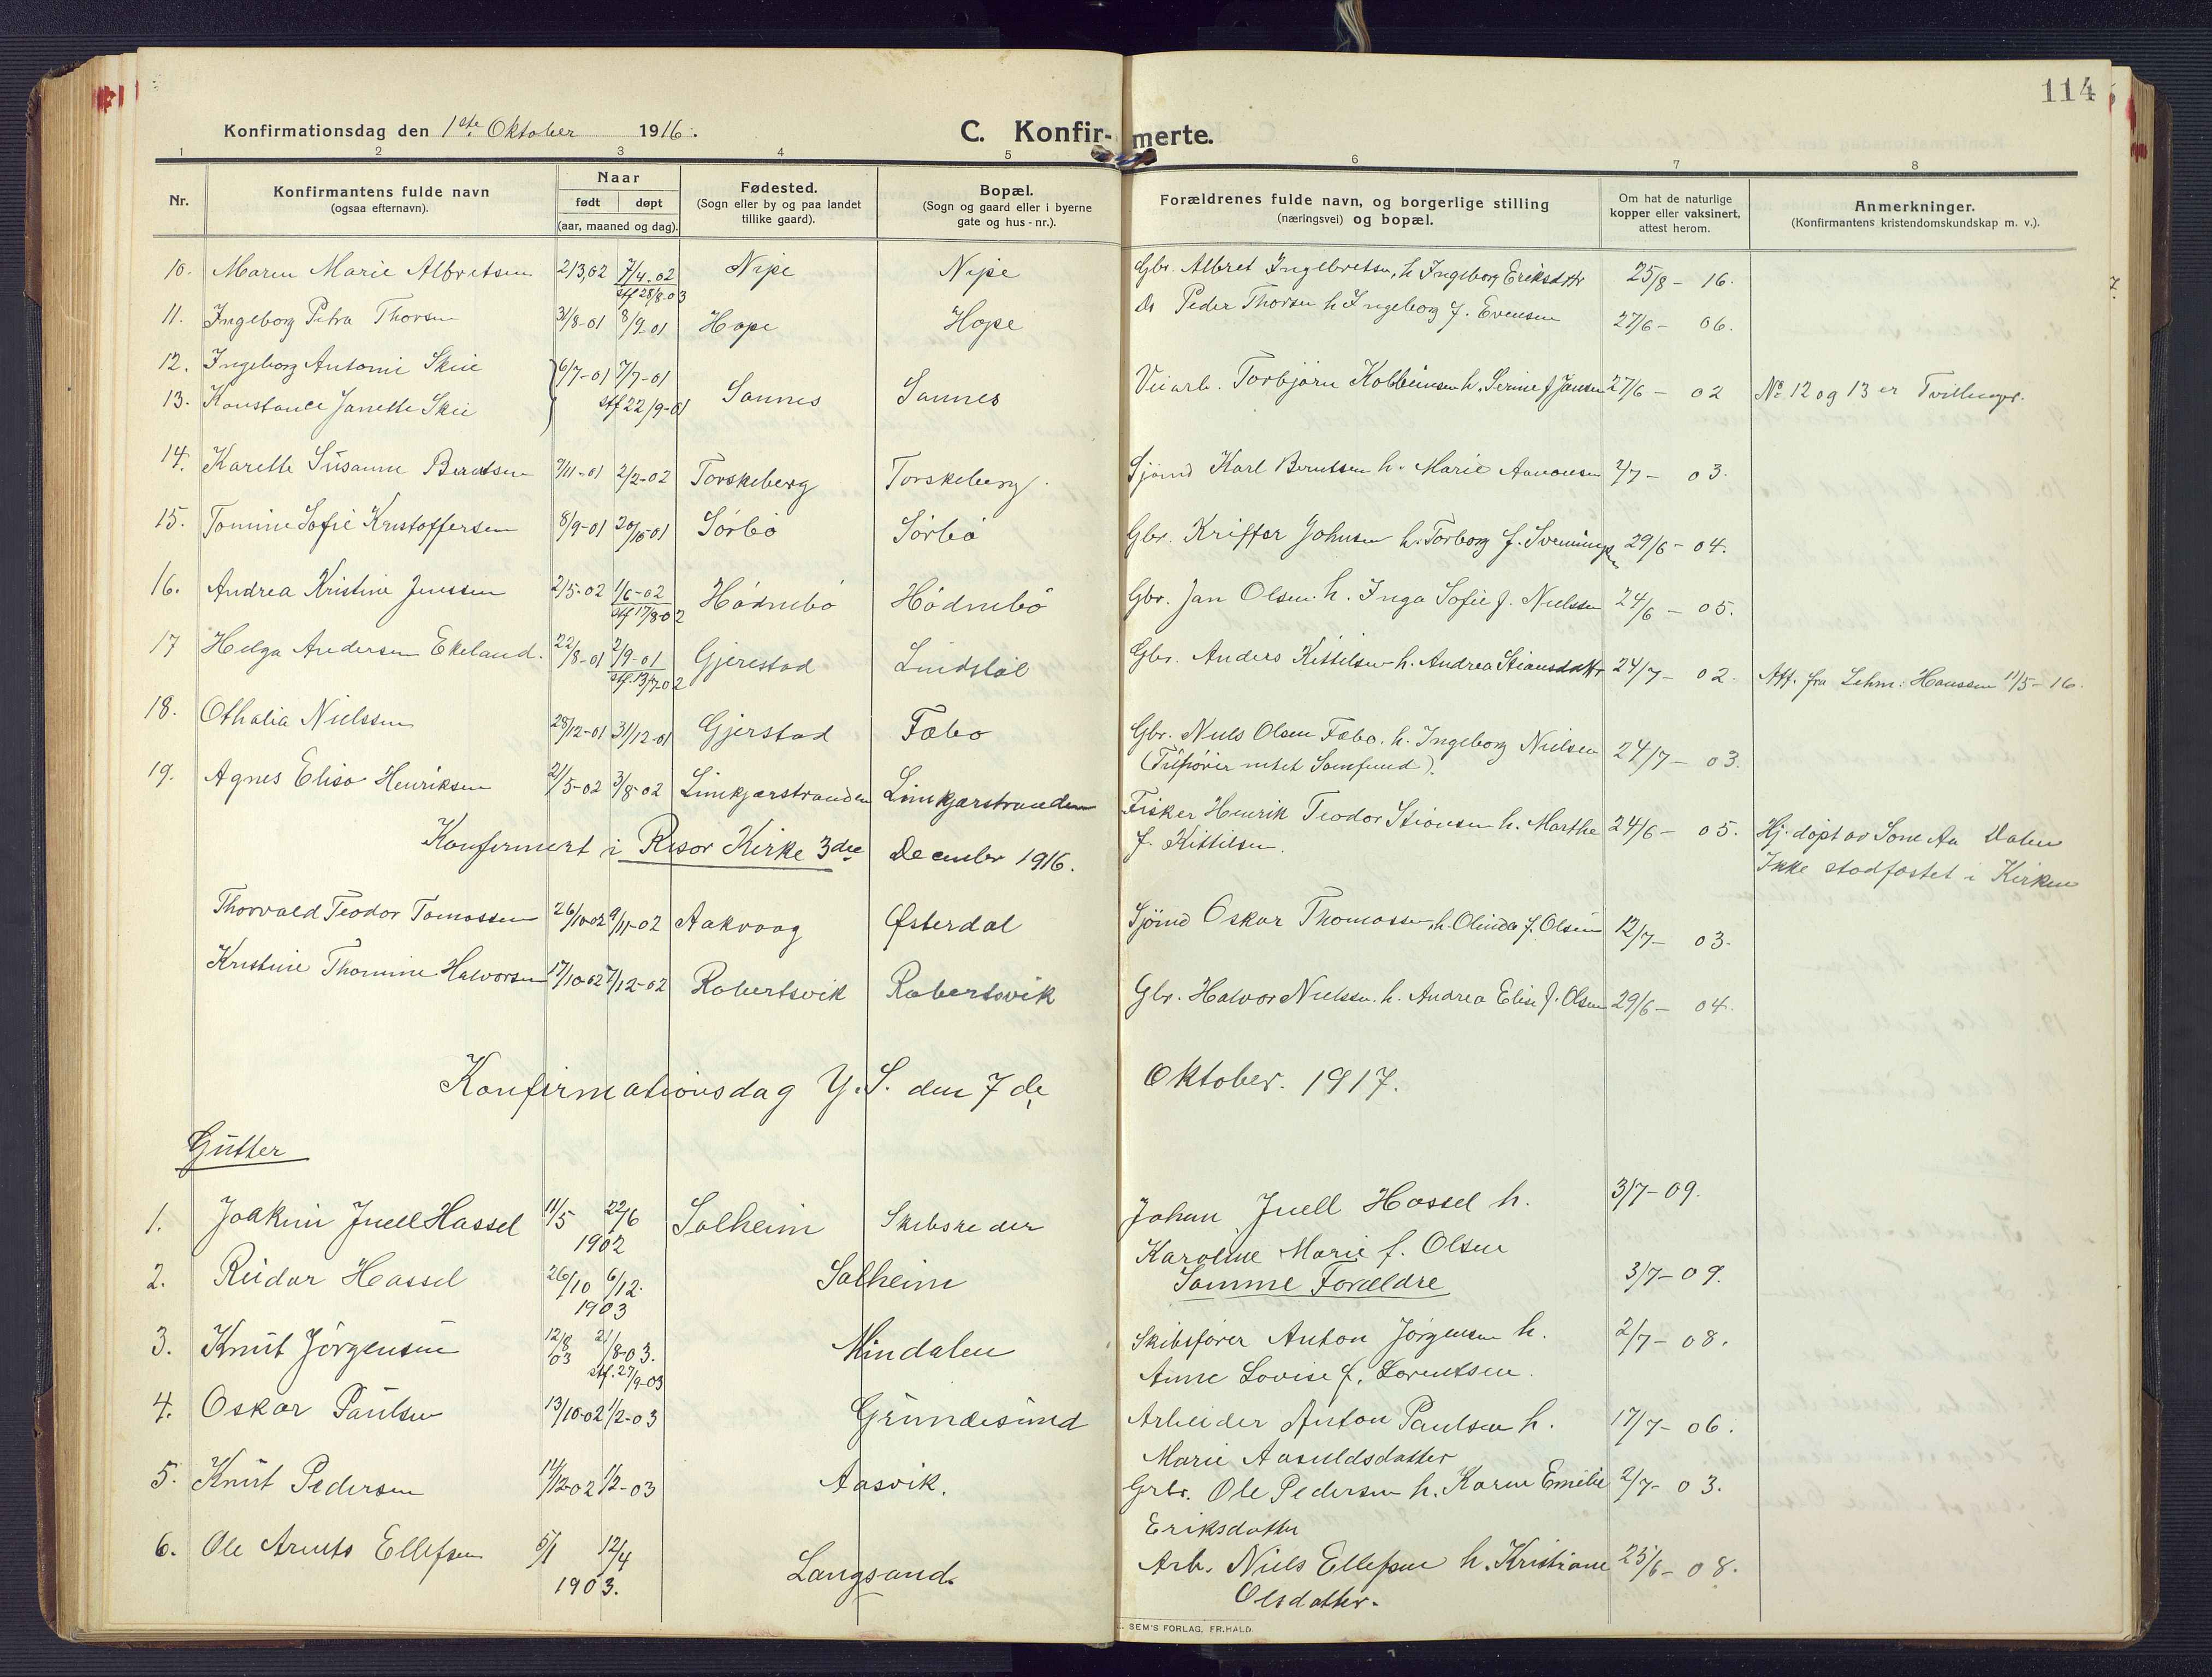 114
Konfirmationsdag den 1ste Oktober 1916.
C. Konfir-merte.
1 2 3 4 5 6 7 8
Nr. Konfirmantens fulde navn (ogsaa efternavn). Naar født døpt (aar, maaned og dag). Fødested. (Sogn eller by og paa landet tillike gaard). Bopæl. (Sogn og gaard eller i byerne gate og hus-nr.). Forældrenes fulde navn, og borgerlige stilling (næringsvei) og bopæl. Om hat de naturlige kopper eller vaksinert, attest herom. Anmerkninger. (Konfirmantens kristendomskundskap m. v.).
10. Maren Marie Albretsen 2/3,02 7/4.02 stf 28/8.03 Nipe Nipe Gbr. Albret Ingebretsen, h Ingeborg Eriksdttr 25/8 - 16.
11. Ingeborg Petra Thorsen 31/8-01 8/9-01 Hope Hope Do Peder Thorsen h Ingeborg f. Evensen 27/6 - 06.
12. Ingeborg Antonie Skie } 6/7-01 7/7-01
13. Konstance Janette Skie stf 22/9-01 Sannes Sannes Veiarb. Torbjørn Kolbeinsen h. Serine f Jansen 27/6 - 02 No 12 og 13 er Tvillinger.
14. Karelle Susanne Berntsen 9/11-01 2/2-02 Torskeberg Torskeberg. Sjømd Karl Berntsen h. Marie Aanonsen 2/7 - 03.
15. Tomine Sofie Kristoffersen 8/9-01 20/10-01 Sørbø Sørbø Gbr. Kriffer Johnsen h. Torborg f. Svenningsen 29/6 - 04.
16. Andrea Kristine Jenssen 2/5-02 1/6-02 stf 17/8-02 Hødnebø Hødnebø Gbr. Jan Olsen. h. Inga Sofie f. Nielssen 24/6 - 05.
17 Helga Andersen Ekeland. 22/8-01 2/9-01 stf. 13/7-02 Gjerestad Lindstøl Gbr. Anders Kittilsen h. Andrea Stiansdattr 24/7 - 02. Att. fra Lehm. Hanssen 11/5-16.
18. Othalia Nielssen 28/12-01 31/12-01 Gjerstad Fæbo Gbr. Niels Olsen Fæbo, h. Ingeborg Nielsen 24/7 - 03.
(Tilhører intet Samfund).
19. Agnes Elisa Henriksen 21/5-02 3/8-02 Linkjærstranden Linkjærstranden Fisker Henrik Teodor Stiansen h. Marthe 24/6 - 05. Hj. døpt av Sone Aa Dalen
f. Kittilsen. Ikke stadfæstet i Kirken
Konfirmert i Risør Kirke 3die December 1916.
Thorvald Teodor Tomassen 26/10-02 9/11-02 Aakvaag Østerdal Sjømd Oskar Thomassen, h. Olinda f. Olsen 12/7 - 03.
Kristine Thomine Halvorsen 17/10-02 7/12-02 Robertsvik Robertsvik Gbr. Halvor Nielssen. h. Andrea Elise f. Olsen 29/6 - 04.
Konfirmationsdag Y. S. den 7de Oktober. 1917.
Gutter
1. Joakim Juell Hassel 11/5 22/6 1902 Solheim Skibsreder Johan Juell Hassel h. 3/7-09.
Karoline Marie f. Olsen
2. Reidar Hassel 26/10 6/12. 1903 Solheim Samme Forældre 3/7-09.
3. Knut Jørgensen 12/8 03 21/8-03. stf. 27/9-03 Mindalen Skibsfører Anton Jørgensen h. 2/7 - 08.
Anne Lovise f. Lorentsen.
4. Oskar Paulsen 13/10-02 1/2-03 Grundesund Arbeider Anton Paulsen h. 17/7 - 06.
Marie Aasuldsdatter
5. Knut Pedersen 14/12-02 1/2-03 Aasvik. Grbr. Ole Pedersen h. Karen Emilie 2/7 - 03.
Eriksdatter
6. Ole Arnets Ellefsen 5/1 12/4 1903. Langsand. Arb. Niels Ellefsen h. Kristiane 25/6 - 08.
Olsdatter.
SEM'S FORLAG, FR.HALD.